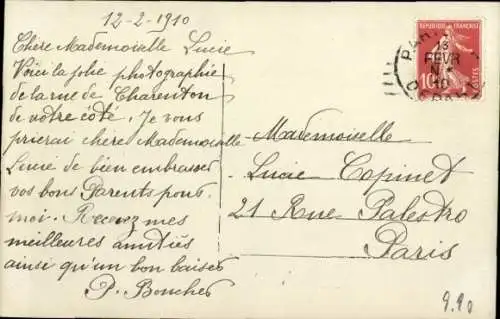 12-2-1910
Chère Mademoiselle Lucie
Voici la jolie photographie
de la rue de Charenton
de votre côté. Je vous
prierai chère Mademoiselle
Lucie de bien embrasser
vos bons Parents pour
moi. Recevez mes
meilleures amitiés
ainsi qu'un bon baiser
P. Boucher
RÉPUBLIQUE FRANÇAISE
10
PARIS
13
FEVR
10
Mademoiselle
Lucie Copinet
21 Rue Palestro
Paris
9.90